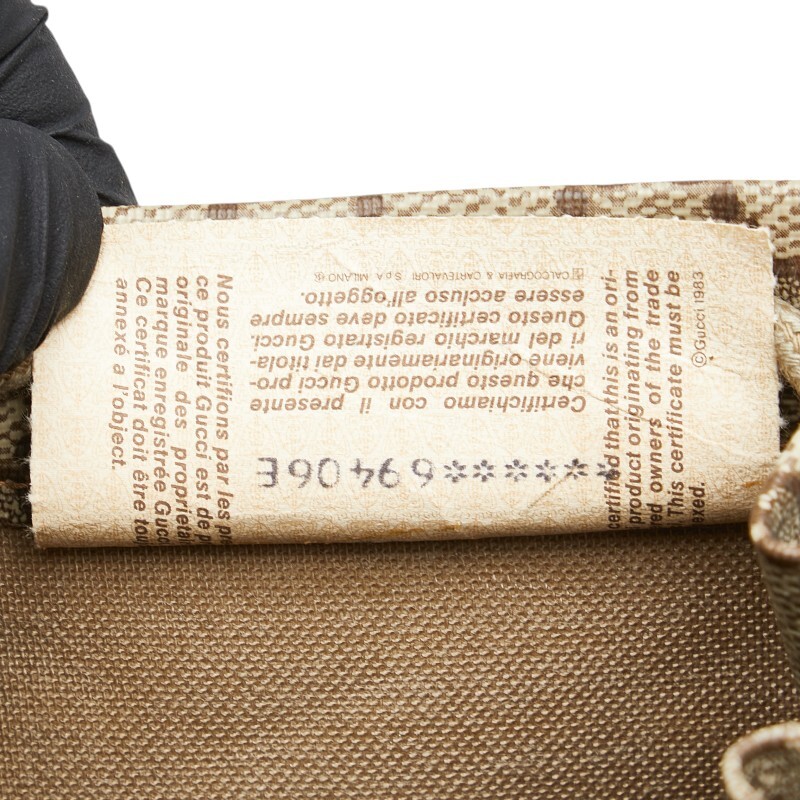 Nous certifions par les
ce produit Gucci est de
originale des
marque enregistrée
Ce certificat doit être
annexé a l'object.
Certifichiamo con il presente
che questo prodotto Gucci pro-
viene originariamente dai titola-
ri del marchio registrato Gucci.
Questo certificato deve sempre
essere accluso all'oggetto.
CALCOGRAFIA & CARTEVALORI S.p.A. MILANO
******69406E
that this is an ori-
product originating from
owners of the trade
This certificate must be
©Gucci 1983